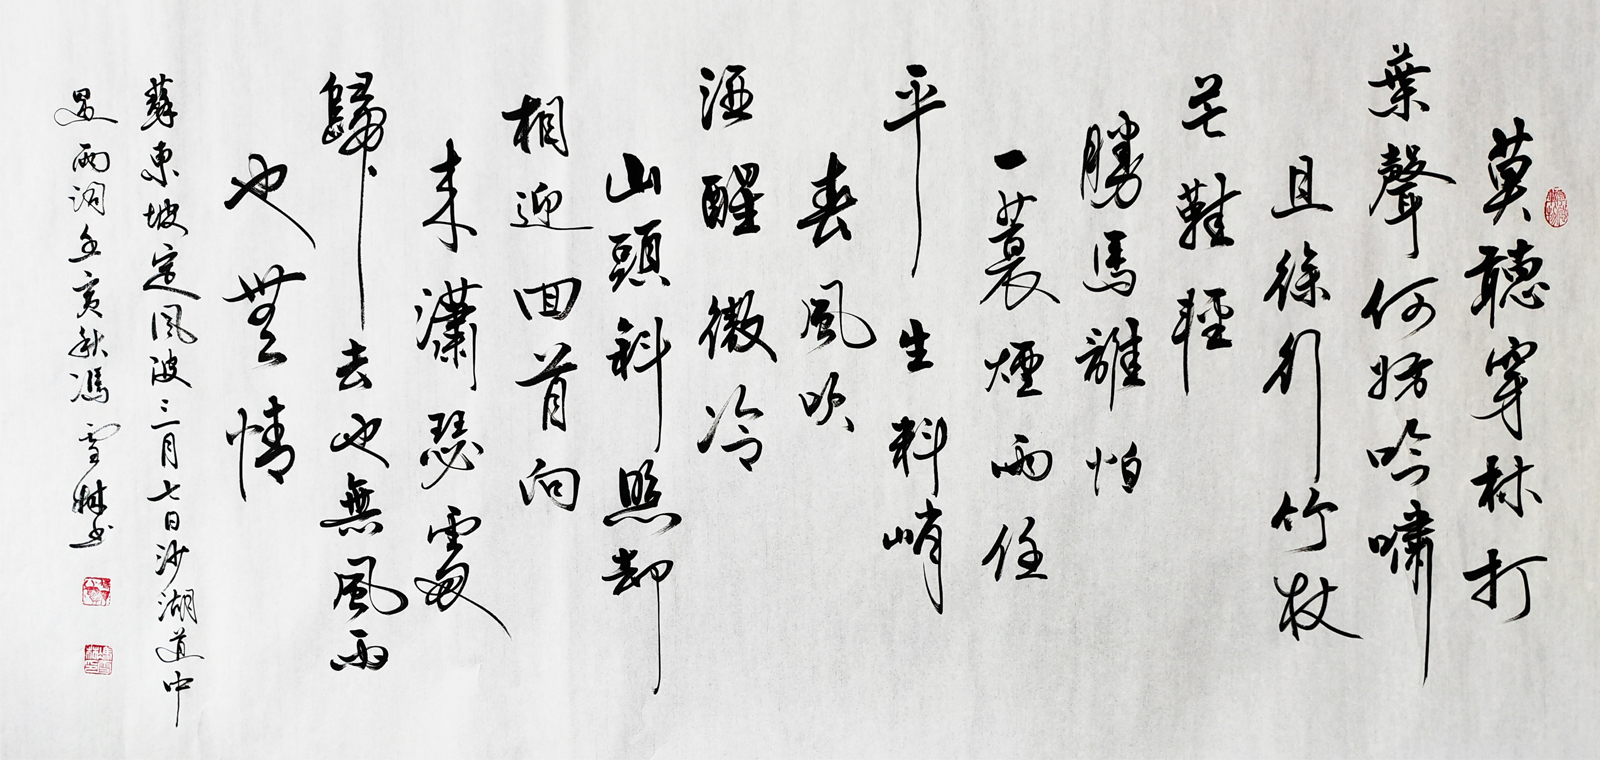 莫聽穿林打
葉聲何妨吟嘯
且徐行竹杖
芒鞋輕
勝馬誰怕
一蓑煙雨任
平生料峭
春風吹
酒醒微冷
山頭斜照却
相迎回首向
来瀟瑟處
歸去也無風雨
也無情
蘇東坡定風波三月七日沙湖道中
遇雨词己亥秋馮雪林书